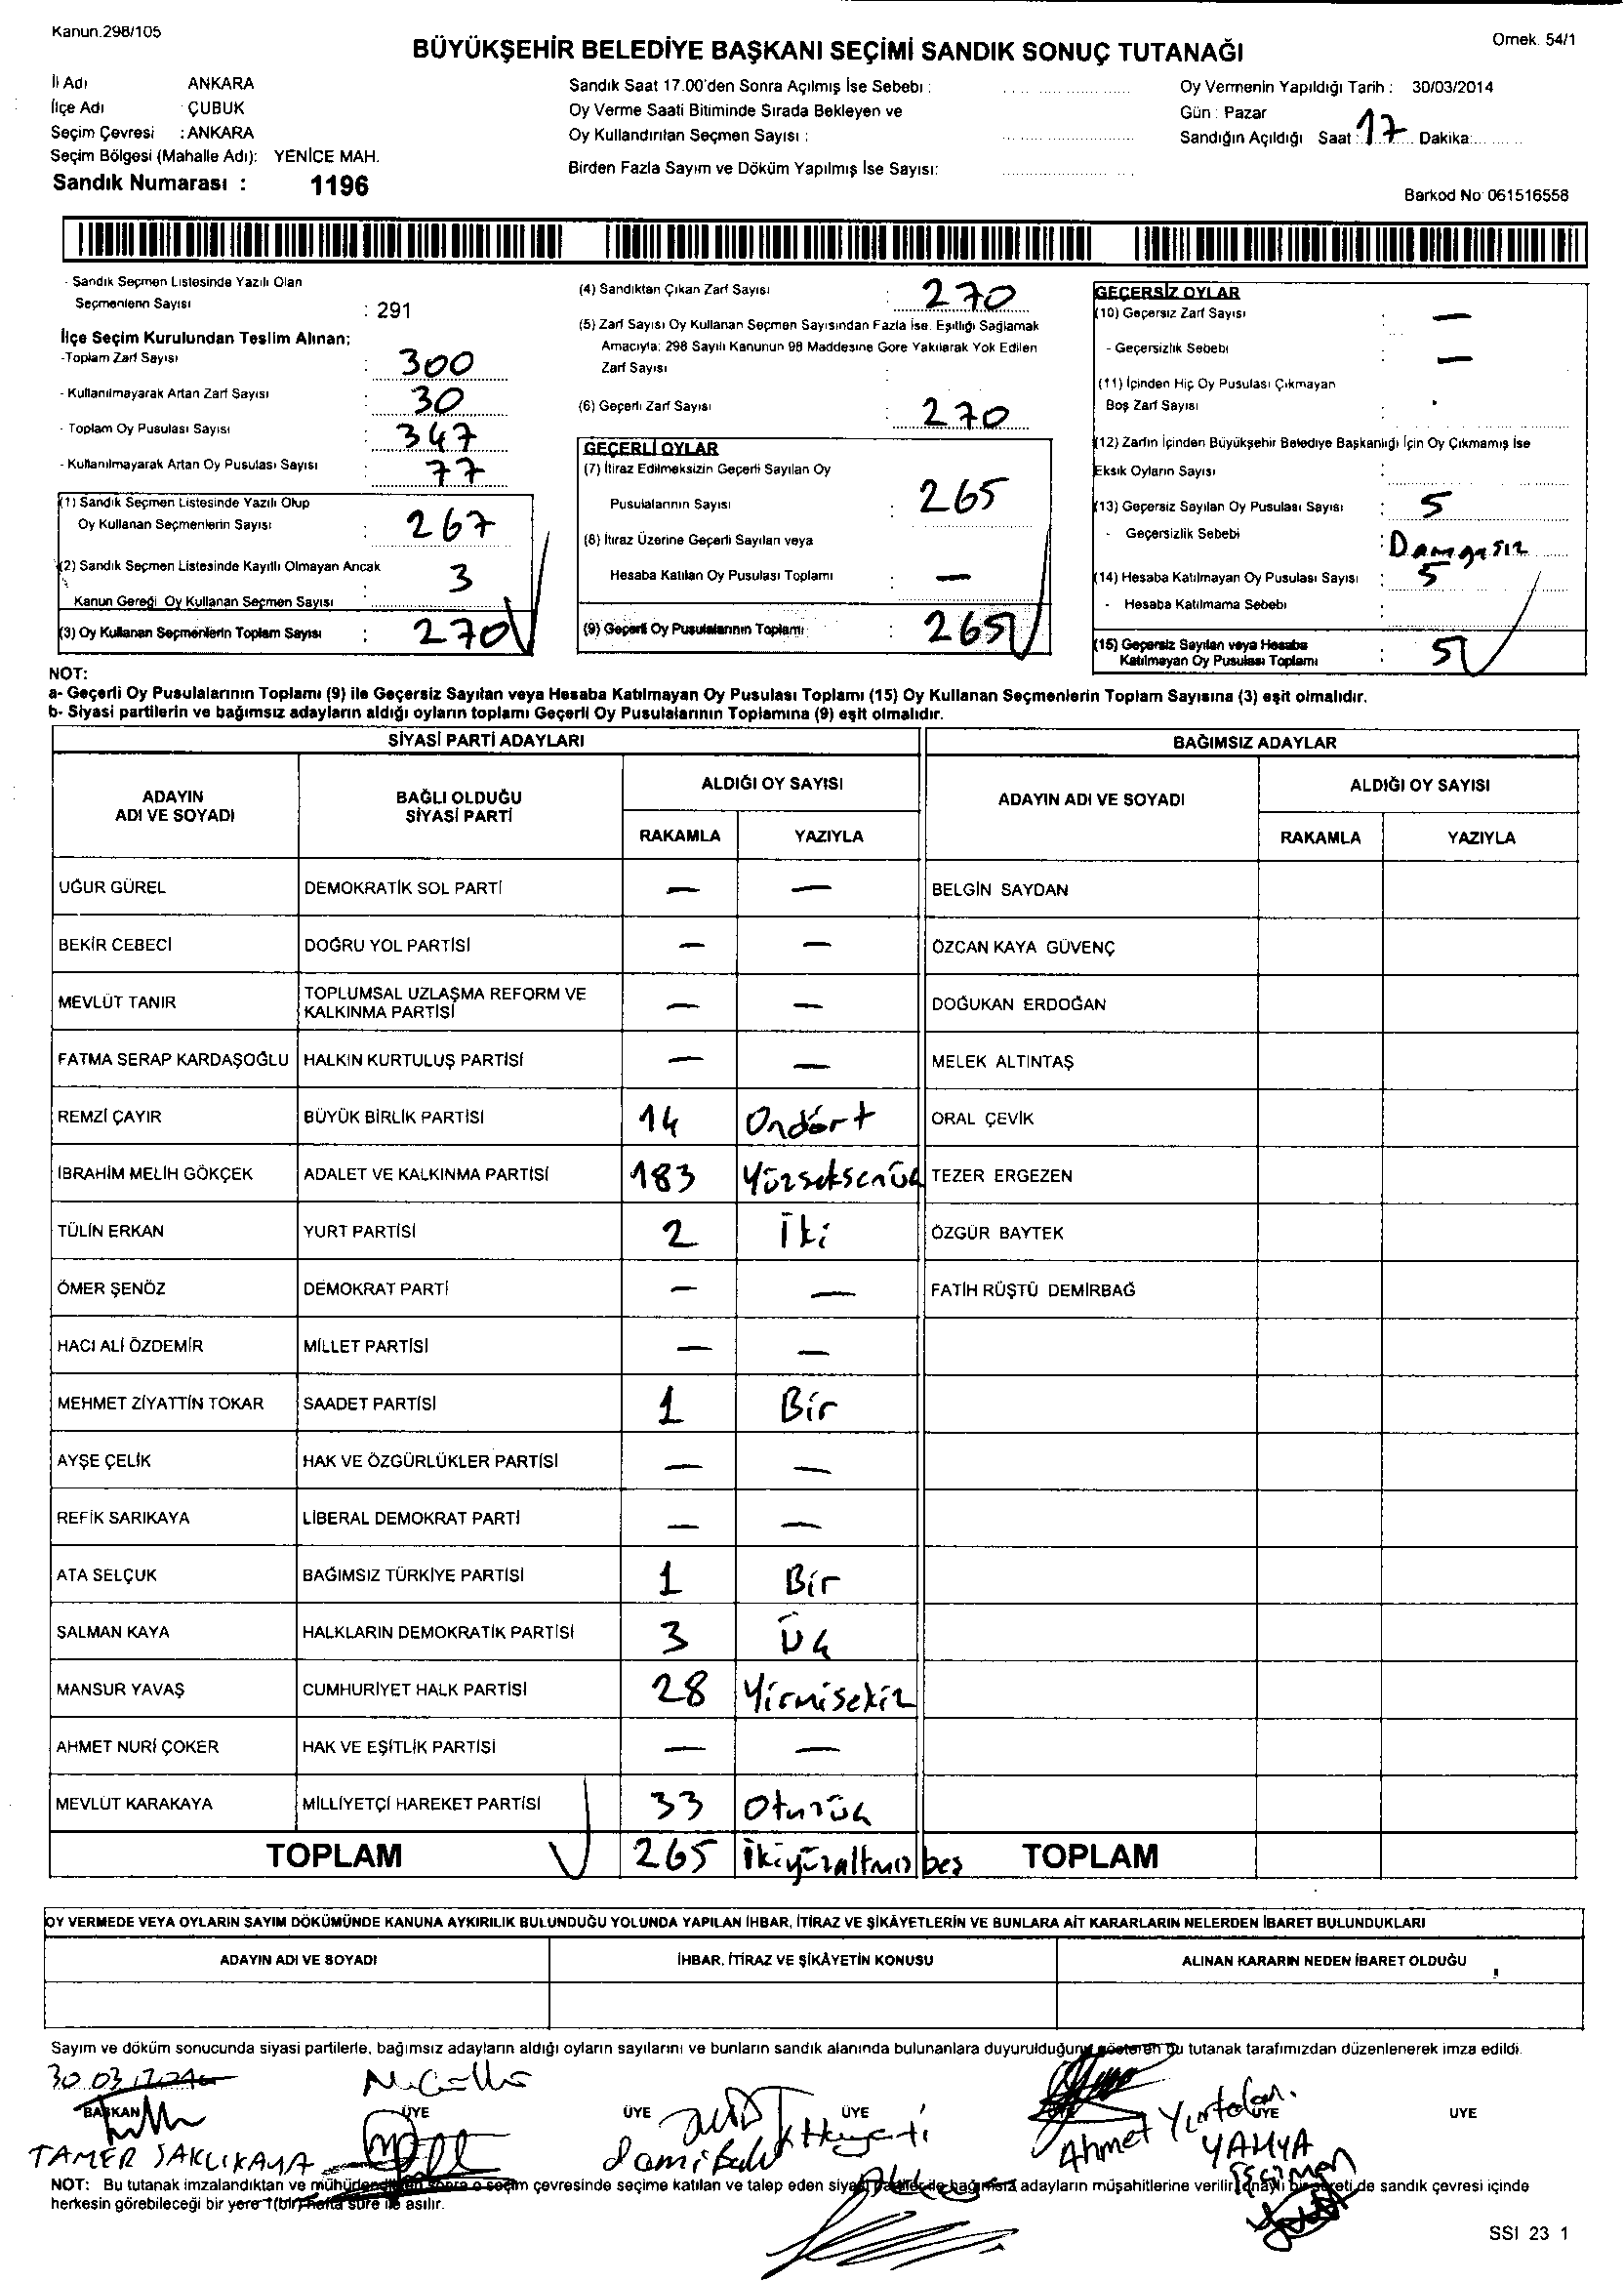 Kanun.298/105
Örnek. 54/1
BÜYÜKŞEHİR BELEDİYE BAŞKANI SEÇİMİ SANDIK SONUÇ TUTANAĞI
İl Adı ANKARA
İlçe Adı ÇUBUK
Seçim Çevresi : ANKARA
Seçim Bölgesi (Mahalle Adı): YENİCE MAH.
Sandık Numarası : 1196
Sandık Saat 17.00'den Sonra Açılmış İse Sebebi :
Oy Verme Saati Bitiminde Sırada Bekleyen ve
Oy Kullandırılan Seçmen Sayısı :
Birden Fazla Sayım ve Döküm Yapılmış İse Sayısı:
Oy Vermenin Yapıldığı Tarih : 30/03/2014
Gün : Pazar
Sandığın Açıldığı Saat : 17 Dakika:
Barkod No: 061516558
- Sandık Seçmen Listesinde Yazılı Olan
Seçmenlerin Sayısı : 291
İlçe Seçim Kurulundan Teslim Alınan:
-Toplam Zarf Sayısı : 300
- Kullanılmayarak Artan Zarf Sayısı : 30
- Toplam Oy Pusulası Sayısı : 347
- Kullanılmayarak Artan Oy Pusulası Sayısı : 77
(1) Sandık Seçmen Listesinde Yazılı Olup
Oy Kullanan Seçmenlerin Sayısı : 267
(2) Sandık Seçmen Listesinde Kayıtlı Olmayan Ancak
Kanun Gereği Oy Kullanan Seçmen Sayısı : 3
(3) Oy Kullanan Seçmenlerin Toplam Sayısı : 270
(4) Sandıktan Çıkan Zarf Sayısı : 270
(5) Zarf Sayısı Oy Kullanan Seçmen Sayısından Fazla İse. Eşitliği Sağlamak
Amacıyla: 298 Sayılı Kanunun 98 Maddesine Göre Yakılarak Yok Edilen
Zarf Sayısı :
(6) Geçerli Zarf Sayısı : 270
GEÇERLİ OYLAR
(7) İtiraz Edilmeksizin Geçerli Sayılan Oy
Pusulalarının Sayısı : 265
(8) İtiraz Üzerine Geçerli Sayılan veya
Hesaba Katılan Oy Pusulası Toplamı : —
(9) Geçerli Oy Pusulalarının Toplamı : 265
GEÇERSİZ OYLAR
(10) Geçersiz Zarf Sayısı : —
- Geçersizlik Sebebi : —
(11) İçinden Hiç Oy Pusulası Çıkmayan
Boş Zarf Sayısı :
(12) Zarfın İçinden Büyükşehir Belediye Başkanlığı İçin Oy Çıkmamış İse
Eksik Oyların Sayısı :
(13) Geçersiz Sayılan Oy Pusulası Sayısı : 5
- Geçersizlik Sebebi : Damgasız
(14) Hesaba Katılmayan Oy Pusulası Sayısı : 5
- Hesaba Katılmama Sebebi :
(15) Geçersiz Sayılan veya Hesaba
Katılmayan Oy Pusulası Toplamı : 5
NOT:
a- Geçerli Oy Pusulalarının Toplamı (9) ile Geçersiz Sayılan veya Hesaba Katılmayan Oy Pusulası Toplamı (15) Oy Kullanan Seçmenlerin Toplam Sayısına (3) eşit olmalıdır.
b- Siyasi partilerin ve bağımsız adayların aldığı oyların toplamı Geçerli Oy Pusulalarının Toplamına (9) eşit olmalıdır.
SİYASİ PARTİ ADAYLARI BAĞIMSIZ ADAYLAR
ADAYIN ADI VE SOYADI BAĞLI OLDUĞU SİYASİ PARTİ ALDIĞI OY SAYISI ADAYIN ADI VE SOYADI ALDIĞI OY SAYISI
RAKAMLA YAZIYLA RAKAMLA YAZIYLA
UĞUR GÜREL DEMOKRATİK SOL PARTİ — — BELGİN SAYDAN
BEKİR CEBECİ DOĞRU YOL PARTİSİ — — ÖZCAN KAYA GÜVENÇ
MEVLÜT TANIR TOPLUMSAL UZLAŞMA REFORM VE KALKINMA PARTİSİ — — DOĞUKAN ERDOĞAN
FATMA SERAP KARDAŞOĞLU HALKIN KURTULUŞ PARTİSİ — — MELEK ALTINTAŞ
REMZİ ÇAYIR BÜYÜK BİRLİK PARTİSİ 14 Ondört ORAL ÇEVİK
İBRAHİM MELİH GÖKÇEK ADALET VE KALKINMA PARTİSİ 183 Yüzseksenüç TEZER ERGEZEN
TÜLİN ERKAN YURT PARTİSİ 2 İki ÖZGÜR BAYTEK
ÖMER ŞENÖZ DEMOKRAT PARTİ — — FATİH RÜŞTÜ DEMİRBAĞ
HACI ALİ ÖZDEMİR MİLLET PARTİSİ — —
MEHMET ZİYATTİN TOKAR SAADET PARTİSİ 1 Bir
AYŞE ÇELİK HAK VE ÖZGÜRLÜKLER PARTİSİ — —
REFİK SARIKAYA LİBERAL DEMOKRAT PARTİ — —
ATA SELÇUK BAĞIMSIZ TÜRKİYE PARTİSİ 1 Bir
SALMAN KAYA HALKLARIN DEMOKRATİK PARTİSİ 3 Üç
MANSUR YAVAŞ CUMHURİYET HALK PARTİSİ 28 Yirmisekiz
AHMET NURİ ÇOKER HAK VE EŞİTLİK PARTİSİ — —
MEVLÜT KARAKAYA MİLLİYETÇİ HAREKET PARTİSİ 33 Otuzüç
TOPLAM 265 İkiyüzaltmışbeş TOPLAM
OY VERMEDE VEYA OYLARIN SAYIM DÖKÜMÜNDE KANUNA AYKIRILIK BULUNDUĞU YOLUNDA YAPILAN İHBAR, İTİRAZ VE ŞİKÂYETLERİN VE BUNLARA AİT KARARLARIN NELERDEN İBARET BULUNDUKLARI
ADAYIN ADI VE SOYADI İHBAR, İTİRAZ VE ŞİKÂYETİN KONUSU ALINAN KARARIN NEDEN İBARET OLDUĞU
Sayım ve döküm sonucunda siyasi partilerle, bağımsız adayların aldığı oyların sayılarını ve bunların sandık alanında bulunanlara duyurulduğunu gösteren bu tutanak tarafımızdan düzenlenerek imza edildi.
30.03.2014
BAŞKAN ÜYE ÜYE ÜYE ÜYE ÜYE
TAMER SAKLIKAYA
Ahmet Yurtalan
YAHYA
NOT: Bu tutanak imzalandıktan ve mühürlendikten sonra o seçim çevresinde seçime katılan ve talep eden siyasi partiler ile bağımsız adayların müşahitlerine verilir onaylı bir sureti de sandık çevresi içinde
herkesin görebileceği bir yere 1(bir) hafta süre ile asılır.
SSI 23 1